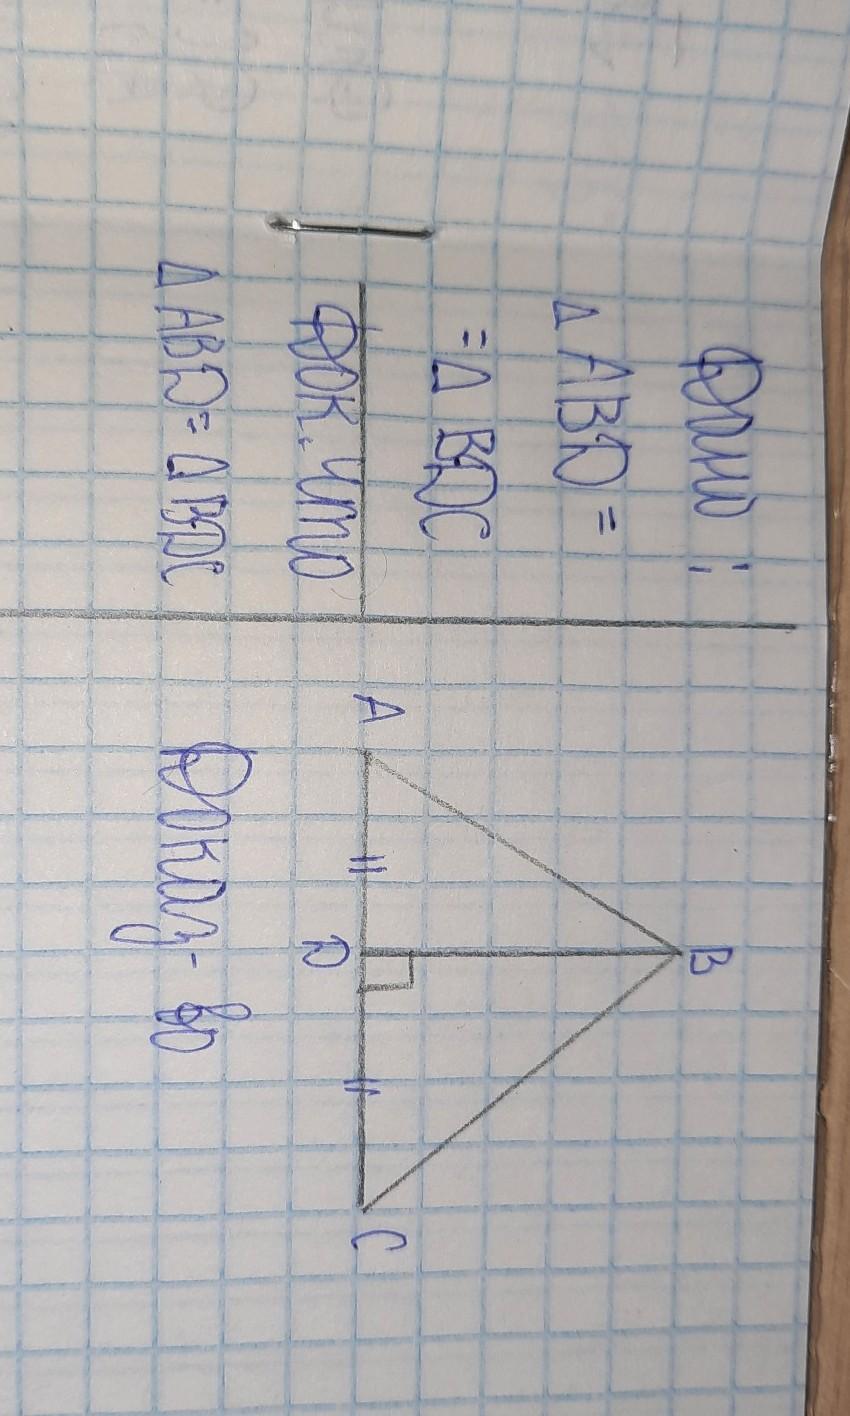 Дано:
Δ ABD =
= Δ BDC
Док. что
Δ ABD = Δ BDC
B
A
D
C
Доказ-во